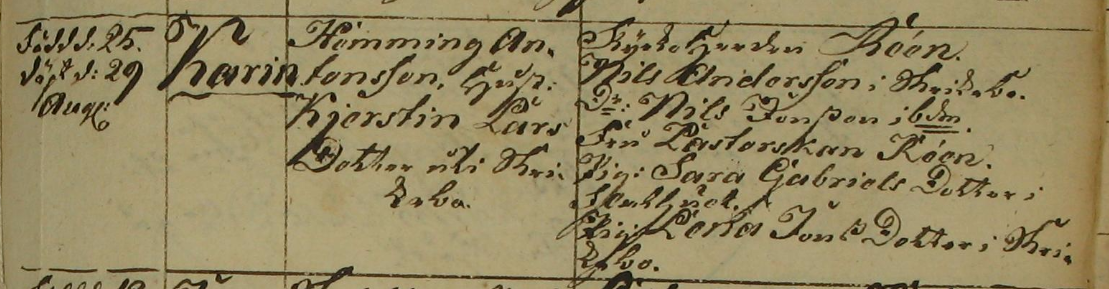 Född d. 25.
döpt d: 29
Aug:
Karin
Hemming An-
tonsson, Hust:
Kjerstin Lars
Dotter uti Skri-
kebo.
Kyrkoherden Röön.
Nils Andersson i Skrikebo.
Dr: Nils Jonsson i bdm.
Fru Pastorskan Röön.
Pig: Sara Gabriels Dotter i
Pig: Lena Jons Dotter i Skri-
kebo.